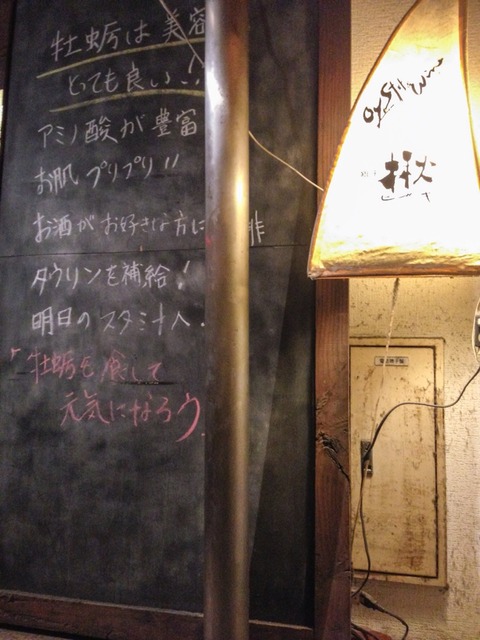 牡蛎は美容
とっても良い!!
アミノ酸が豊富
お肌プリプリ!!
お酒がお好きな方に 非
タウリンを補給!
明日のスタミナへ.
「牡蛎を食して
元気になろう
楸